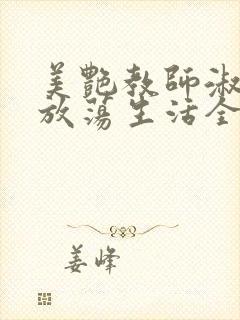 美艷教師淑
放蕩生活全
姜峰